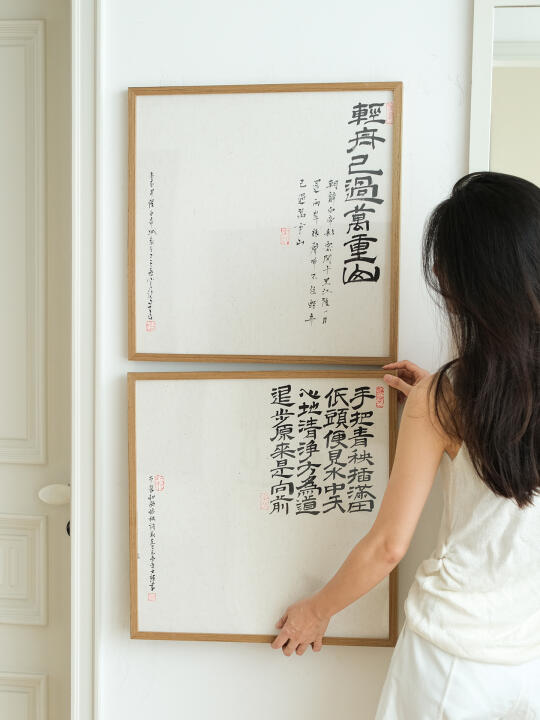 輕舟已過萬重山
朝辭白帝彩雲間千里江陵一日
還兩岸猿聲啼不住輕舟
已過萬重山
手把青秧插滿田
低頭便見水中天
心地清淨方為道
退步原來是向前